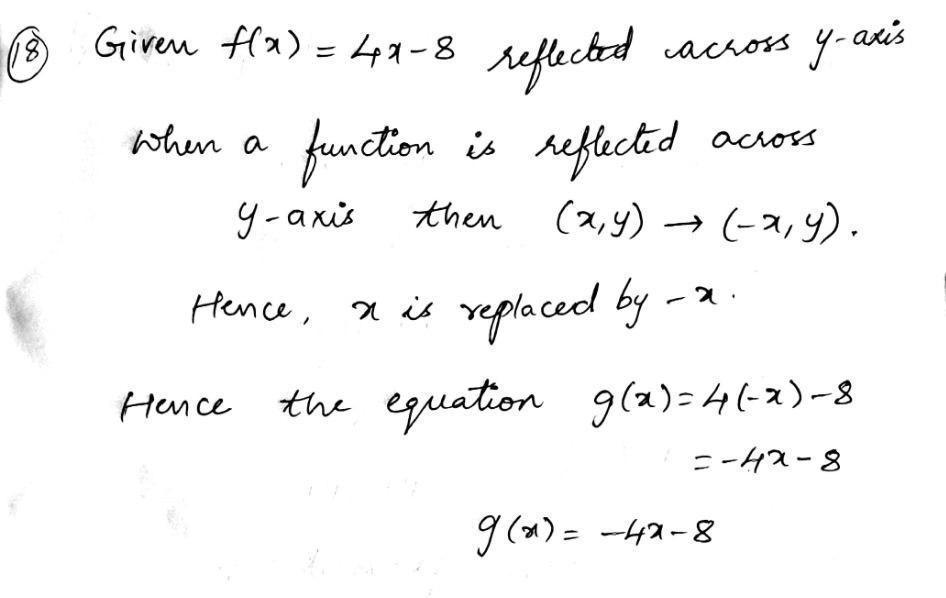 (18) Given f(x) = 4x-8 reflected across y-axis
when a function is reflected across
y-axis then (x,y) → (-x, y).
Hence, x is replaced by -x.
Hence the equation g(x) = 4(-x)-8
= -4x-8
g(x) = -4x-8